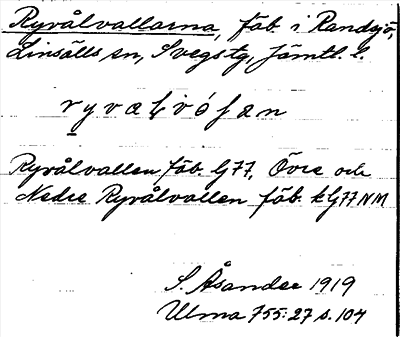 Ryvålvallarna, fäb. i Randsjö,
Linsälls sn, Svegs tg, Jämtl. l.
ryvaɫvóɫan
Ryvålvallen fäb. G77, Övre och
Nedre Ryvålvallen fäb. k G77 NM
S. Åsander 1919
Ulma 755:27 s. 104